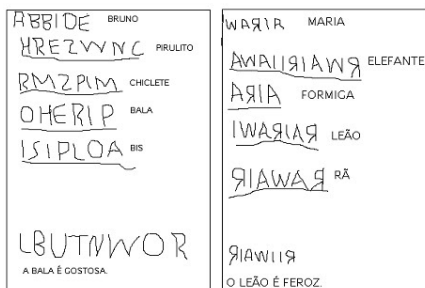 ABBIDE BRUNO
HREZWNC PIRULITO
RMZPIM CHICLETE
OHERIP BALA
ISIPLOA BIS
LBUTNWOR
A BALA É GOSTOSA.
WARIR MARIA
AWAIIRIAWR ELEFANTE
ARIA FORMIGA
IWARIAR LEÃO
RIAWAR RÃ
RIAWIIR
O LEÃO É FEROZ.